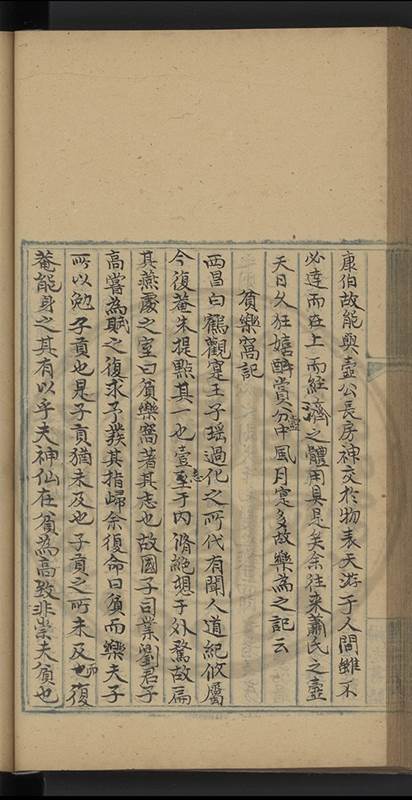 康伯故能與壺公長房神交於物表天游于人間雖不
必達而在上而經濟之體用具是矣余往來蕭氏之壺
天日久狂嬉醉賞壺中風月寔多故樂為之記云
貧樂窩記
西昌白鶴觀寔王子瑶過化之所代有聞人道紀攸屬
今復菴朱提點其一也壹志于内脩絶想于外騖故扁
其燕處之室曰貧樂窩著其志也故國子司業劉君子
高嘗為賦之復求予發其指歸余復命曰貧而樂夫子
所以勉子貢也是子貢猶未及也子貢之所未及而復
菴能身之其有以乎夫神仙在貧為高致非崇夫貧也